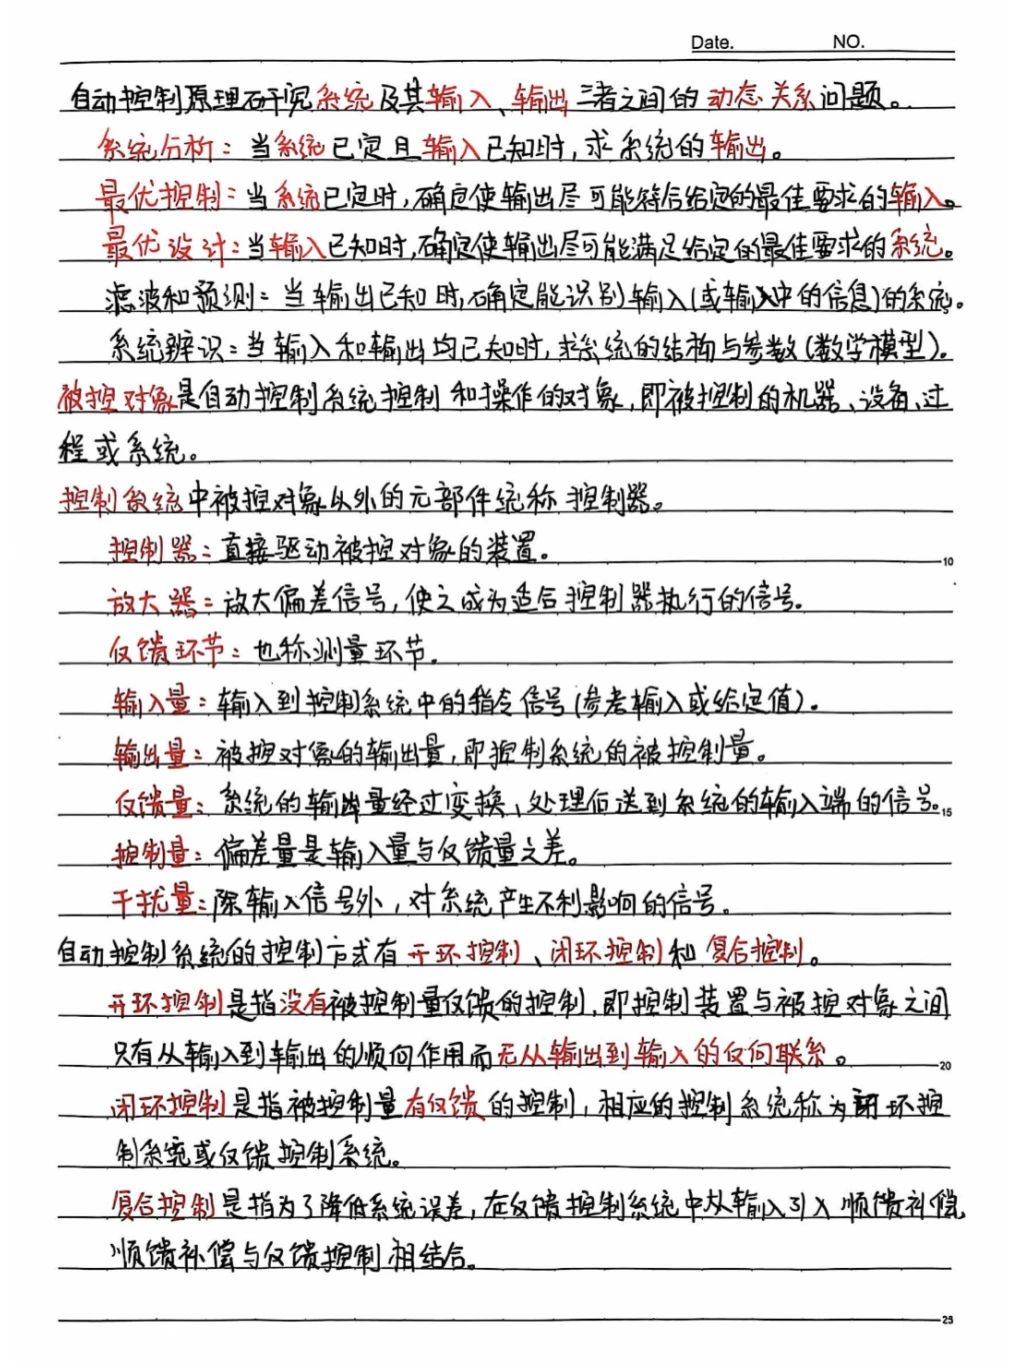 Date. NO.
自动控制原理研究系统及其输入、输出三者之间的动态关系问题。
系统分析：当系统已定且输入已知时，求系统的输出。
最优控制：当系统已定时，确定使输出尽可能符合给定的最佳要求的输入。
最优设计：当输入已知时，确定使输出尽可能满足给定的最佳要求的系统。
滤波和预测：当输出已知时，确定能识别输入(或输入中的信息)的系统。
系统辨识：当输入和输出均已知时，求系统的结构与参数(数学模型)。
被控对象是自动控制系统控制和操作的对象，即被控制的机器、设备、过
程或系统。
控制系统中被控对象以外的元部件统称控制器。
控制器：直接驱动被控对象的装置。
10
放大器：放大偏差信号，使之成为适合控制器执行的信号。
反馈环节：也称测量环节。
输入量：输入到控制系统中的指令信号(参考输入或给定值)。
输出量：被控对象的输出量，即控制系统的被控制量。
反馈量：系统的输出量经过变换、处理后送到系统的输入端的信号。
15
控制量：偏差量是输入量与反馈量之差。
干扰量：除输入信号外，对系统产生不利影响的信号。
自动控制系统的控制方式有开环控制、闭环控制和复合控制。
开环控制是指没有被控制量反馈的控制，即控制装置与被控对象之间
只有从输入到输出的顺向作用而无从输出到输入的反向联系。
20
闭环控制是指被控制量有反馈的控制，相应的控制系统称为闭环控
制系统或反馈控制系统。
复合控制是指为了降低系统误差，在反馈控制系统中从输入引入顺馈补偿，
顺馈补偿与反馈控制相结合。
25